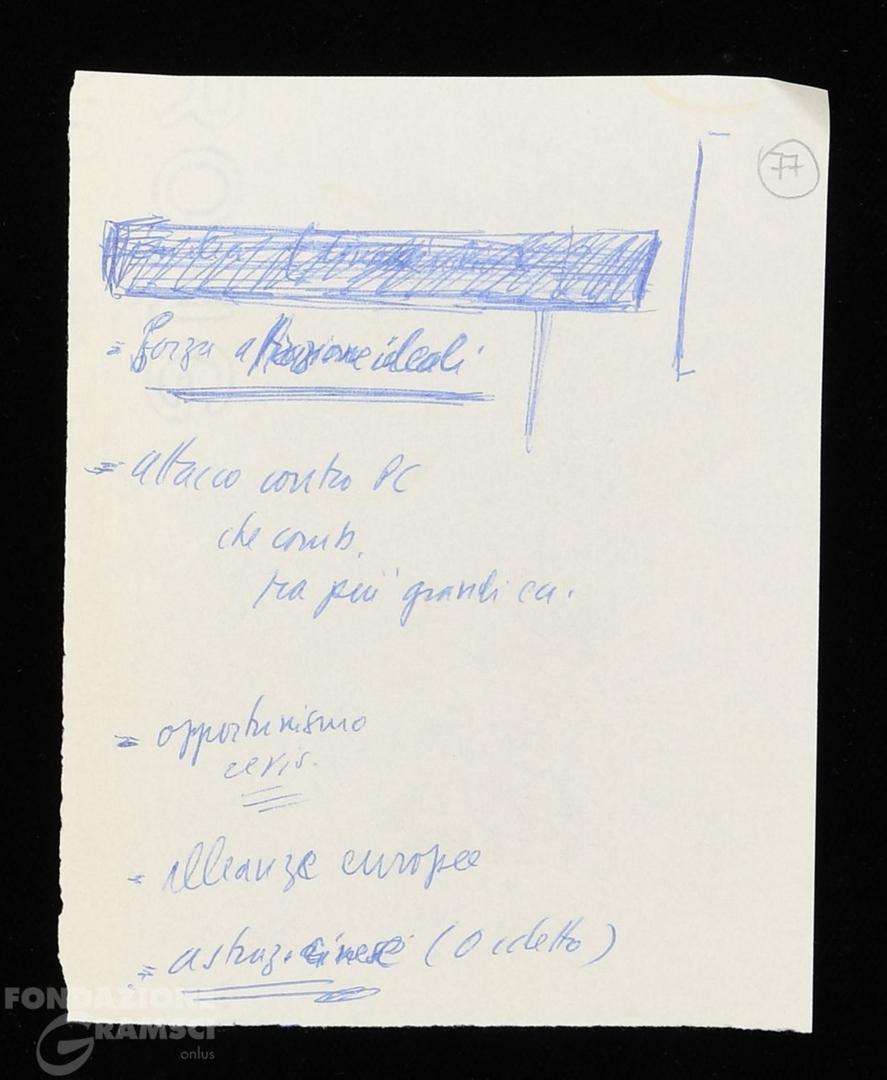 77
= Forza attrazione ideali
= attacco contro PC
che comb.
tra più grandi
= opportunismo
revis.
= alleanze europee
= astraz. cinese (Occhetto)
FONDAZIONE
GRAMSCI
onlus